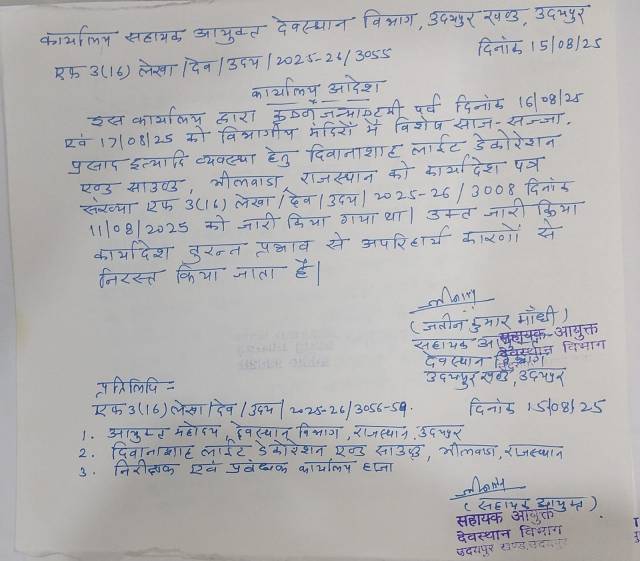 कार्यालय सहायक आयुक्त देवस्थान विभाग, उदयपुर खण्ड, उदयपुर
एफ 3(16) लेखा/देव/उदय/2025-26/3055 दिनांक 15/08/25
कार्यालय आदेश
इस कार्यालय द्वारा कृष्ण जन्माष्टमी पर्व दिनांक 16/08/25
एवं 17/08/25 को विभागीय मंदिरों में विशेष साज-सज्जा,
प्रसाद इत्यादि व्यवस्था हेतु दिवानाशाह लाईट डेकोरेशन
एण्ड साउण्ड, भीलवाडा, राजस्थान को कार्यादेश पत्र
संख्या एफ 3(16) लेखा/देव/उदय/2025-26/3008 दिनांक
11/08/2025 को जारी किया गया था| उक्त जारी किया
कार्यादेश तुरन्त प्रभाव से अपरिहार्य कारणों से
निरस्त किया जाता है|
(जतीन कुमार गाँधी)
सहायक आयुक्त
सहायक आयुक्त
देवस्थान विभाग
देवस्थान विभाग
उदयपुर खण्ड, उदयपुर
प्रतिलिपि =
एफ 3(16) लेखा/देव/उदय/2025-26/3056-59. दिनांक 15/08/25
1. आयुक्त महोदय, देवस्थान विभाग, राजस्थान, उदयपुर
2. दिवानाशाह लाईट डेकोरेशन एण्ड साउण्ड, भीलवाडा, राजस्थान
3. निरीक्षक एवं प्रबंधक कार्यालय हाजा
(सहायक आयुक्त)
सहायक आयुक्त
देवस्थान विभाग
उदयपुर खण्ड, उदयपुर